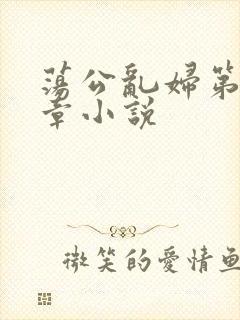 蕩公亂婦第
章小說
微笑的愛情魚